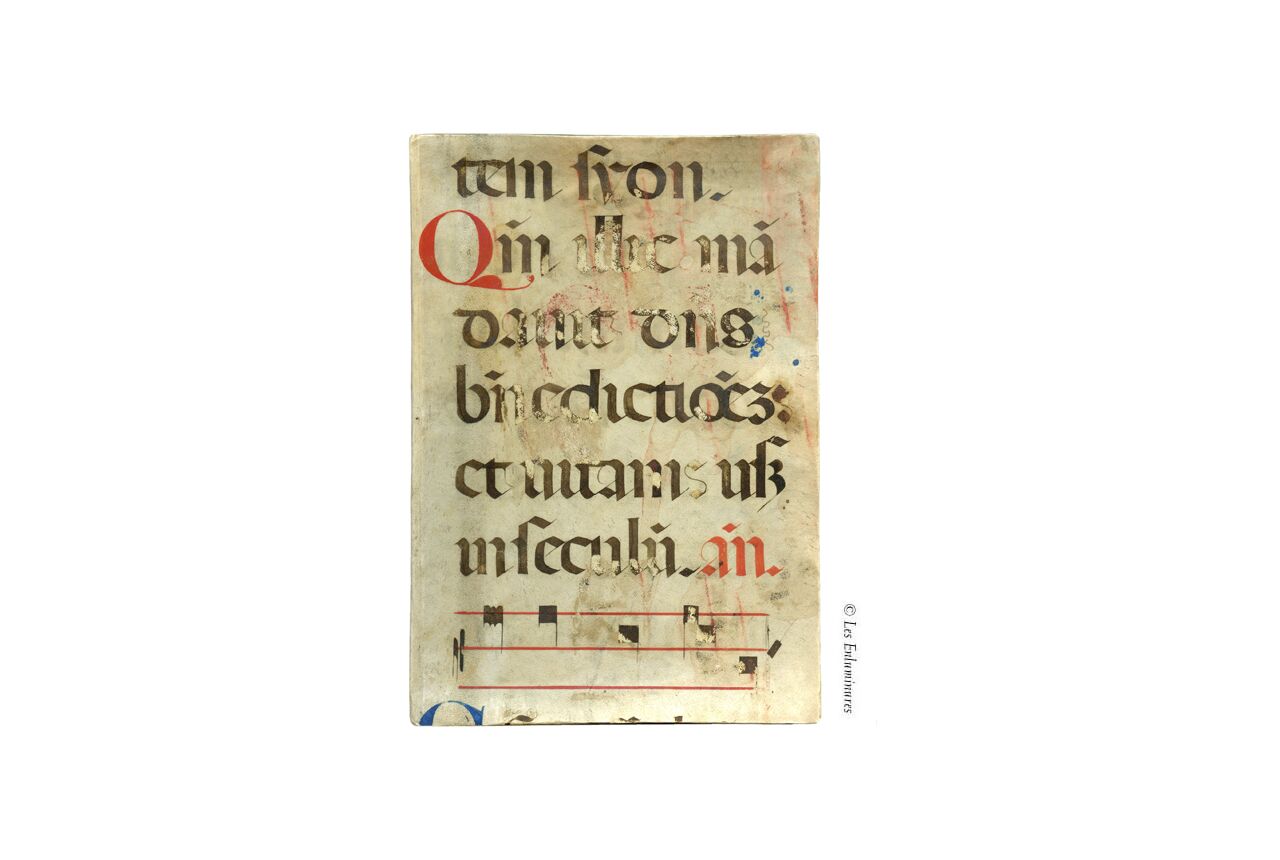 tem syon.
Qm̄ illic mā
davit dn̄s
bn̄edictiōēz:
et uitam usqз
in seculū. an̄.
© Les Enluminures